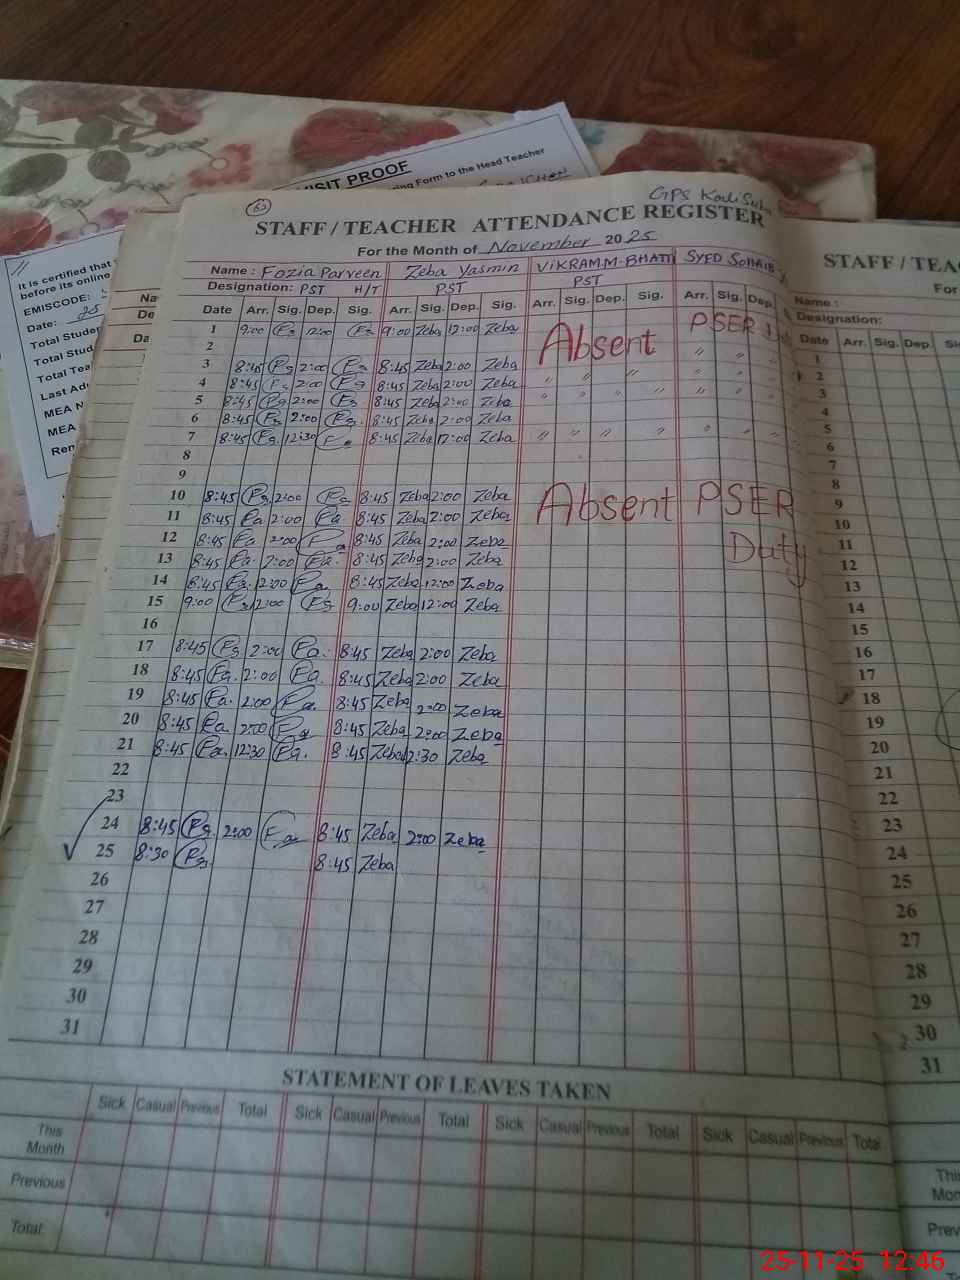 VISIT PROOF
ing Form to the Head Teacher
It is certified that
before its online
EMISCODE:
Date: 25
Total Studen
Total Stud
Total Tea
Last Ad
MEA N
MEA
Ren
GPS
STAFF / TEACHER ATTENDANCE REGISTER
For the Month of November 2025
Name: Fozia Parveen Zeba Yasmin VIKRAM.M-BHATTI SYED SOHAIB
Designation: PST H/T PST PST
Date Arr. Sig. Dep. Sig. Arr. Sig. Dep. Sig. Arr. Sig. Dep. Sig. Arr. Sig. Dep.
1 9:00 Fa 12:00 Fa 9:00 Zeba 12:00 Zeba Absent PSER
2
3 8:45 Fa 2:00 Fa 8:45 Zeba 2:00 Zeba " " "
4 8:45 Fa 2:00 Fa 8:45 Zeba 2:00 Zeba " " " " " "
5 8:45 Fa 2:00 Fa 8:45 Zeba 2:00 Zeba " " " " " " "
6 8:45 Fa 2:00 Fa 8:45 Zeba 2:00 Zeba
7 8:45 Fa 12:30 Fa 8:45 Zeba 12:00 Zeba " " " " " " "
8
9
10 8:45 Fa 2:00 Fa 8:45 Zeba 2:00 Zeba Absent PSER
11 8:45 Fa 2:00 Fa 8:45 Zeba 2:00 Zeba Duty
12 8:45 Fa 2:00 Fa 8:45 Zeba 2:00 Zeba
13 8:45 Fa 2:00 Fa 8:45 Zeba 2:00 Zeba
14 8:45 Fa 2:00 Fa 8:45 Zeba 12:00 Zeba
15 9:00 Fa 12:00 Fa 9:00 Zeba 12:00 Zeba
16
17 8:45 Fa 2:00 Fa 8:45 Zeba 2:00 Zeba
18 8:45 Fa 2:00 Fa 8:45 Zeba 2:00 Zeba
19 8:45 Fa 2:00 Fa 8:45 Zeba 2:00 Zeba
20 8:45 Fa 2:00 Fa 8:45 Zeba 2:00 Zeba
21 8:45 Fa 12:30 Fa 8:45 Zeba 12:30 Zeba
22
23
24 8:45 Fa 2:00 Fa 8:45 Zeba 2:00 Zeba
25 8:30 Fa 8:45 Zeba
26
27
28
29
30
31
STATEMENT OF LEAVES TAKEN
Sick Casual Previous Total Sick Casual Previous Total Sick Casual Previous Total Sick Casual Previous Total
This Month
Previous
Total:
STAFF / TEA
For
Name :
Designation:
Date Arr. Sig. Dep. Si
1
2
3
4
5
6
7
8
9
10
11
12
13
14
15
16
17
18
19
20
21
22
23
24
25
26
27
28
29
30
31
Thi
Mon
Prev
Tot
25-11-25 12:46